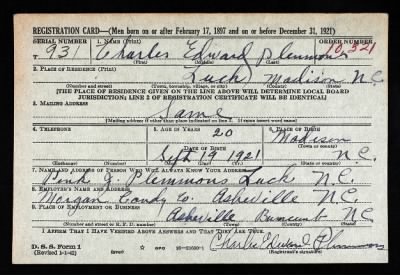 REGISTRATION CARD—(Men born on or after February 17, 1897 and on or before December 31, 1921)
SERIAL NUMBER 1. NAME (Print) ORDER NUMBER
T 931 Charles Edward Plemmons 10,321
(First) (Middle) (Last)
2. PLACE OF RESIDENCE (Print)
Luck Madison N.C.
(Number and street) (Town, township, village, or city) (County) (State)
[THE PLACE OF RESIDENCE GIVEN ON THE LINE ABOVE WILL DETERMINE LOCAL BOARD
JURISDICTION; LINE 2 OF REGISTRATION CERTIFICATE WILL BE IDENTICAL]
3. MAILING ADDRESS
Same
[Mailing address if other than place indicated on line 2. If same insert word same]
4. TELEPHONE 5. AGE IN YEARS 6. PLACE OF BIRTH
20 Madison
DATE OF BIRTH (Town or county)
Sept 19 1921 N.C.
(Exchange) (Number) (Mo.) (Day) (Yr.) (State or country)
7. NAME AND ADDRESS OF PERSON WHO WILL ALWAYS KNOW YOUR ADDRESS
J. Plemmons Luck N.C.
8. EMPLOYER'S NAME AND ADDRESS
Morgan Candy Co. Asheville N.C.
9. PLACE OF EMPLOYMENT OR BUSINESS
Asheville Buncomb N.C.
(Number and street or R. F. D. number) (Town) (County) (State)
I AFFIRM THAT I HAVE VERIFIED ABOVE ANSWERS AND THAT THEY ARE TRUE.
D. S. S. Form 1
(Revised 1-1-42) (over) GPO 16—21630-1 Charles Edward Plemmons